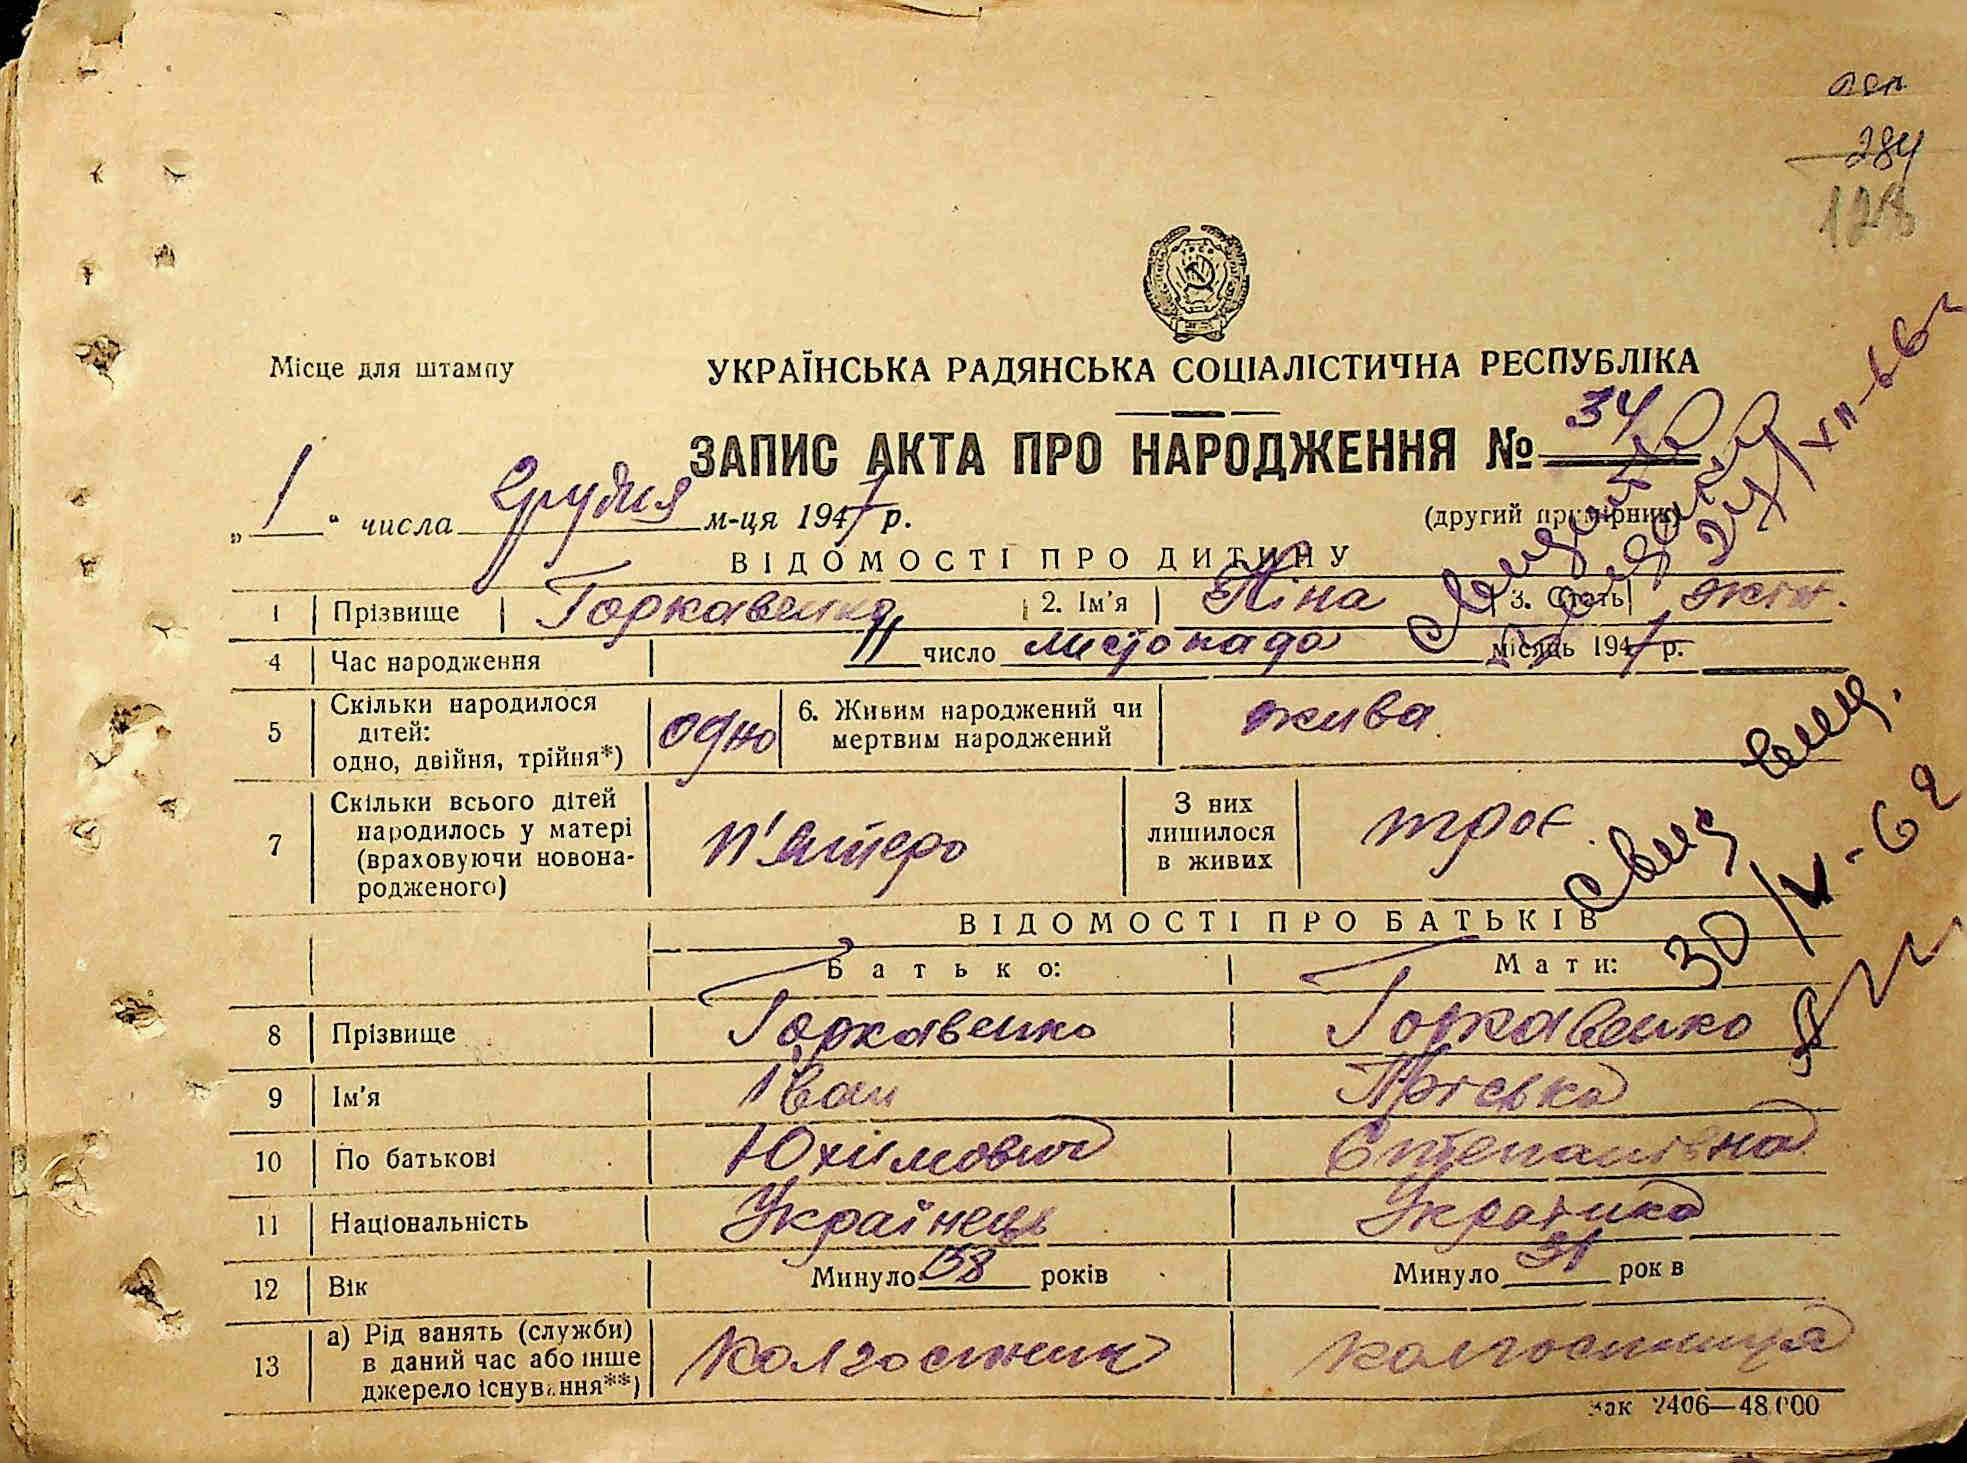 284
128
Місце для штампу
УКРАЇНСЬКА РАДЯНСЬКА СОЦІАЛІСТИЧНА РЕСПУБЛІКА
ЗАПИС АКТА ПРО НАРОДЖЕННЯ № 34
„ 1 “ числа грудня м-ця 1947 р.
(другий примірник)
24/XII-66 г
ВІДОМОСТІ ПРО ДИТИНУ
1 Прізвище Горкавенко 2. Ім'я Ніна 3. Стать жін.
4 Час народження 11 число листопада місяць 1947 р.
5 Скільки народилося дітей: одно, двійня, трійня*) одно 6. Живим народжений чи мертвим народжений жива
7 Скільки всього дітей народилось у матері (враховуючи новонародженого) п'ятеро З них лишилося в живих троє
30/V-62
ВІДОМОСТІ ПРО БАТЬКІВ
Батько: Мати:
8 Прізвище Горкавенко Горкавенко
9 Ім'я Іван Пріська
10 По батькові Юхимович Степанівна
11 Національність Українець Українка
12 Вік Минуло 38 років Минуло 31 рок в
13 а) Рід занять (служби) в даний час або інше джерело існування**) колгоспник колгоспниця
Зак 2406—48.000